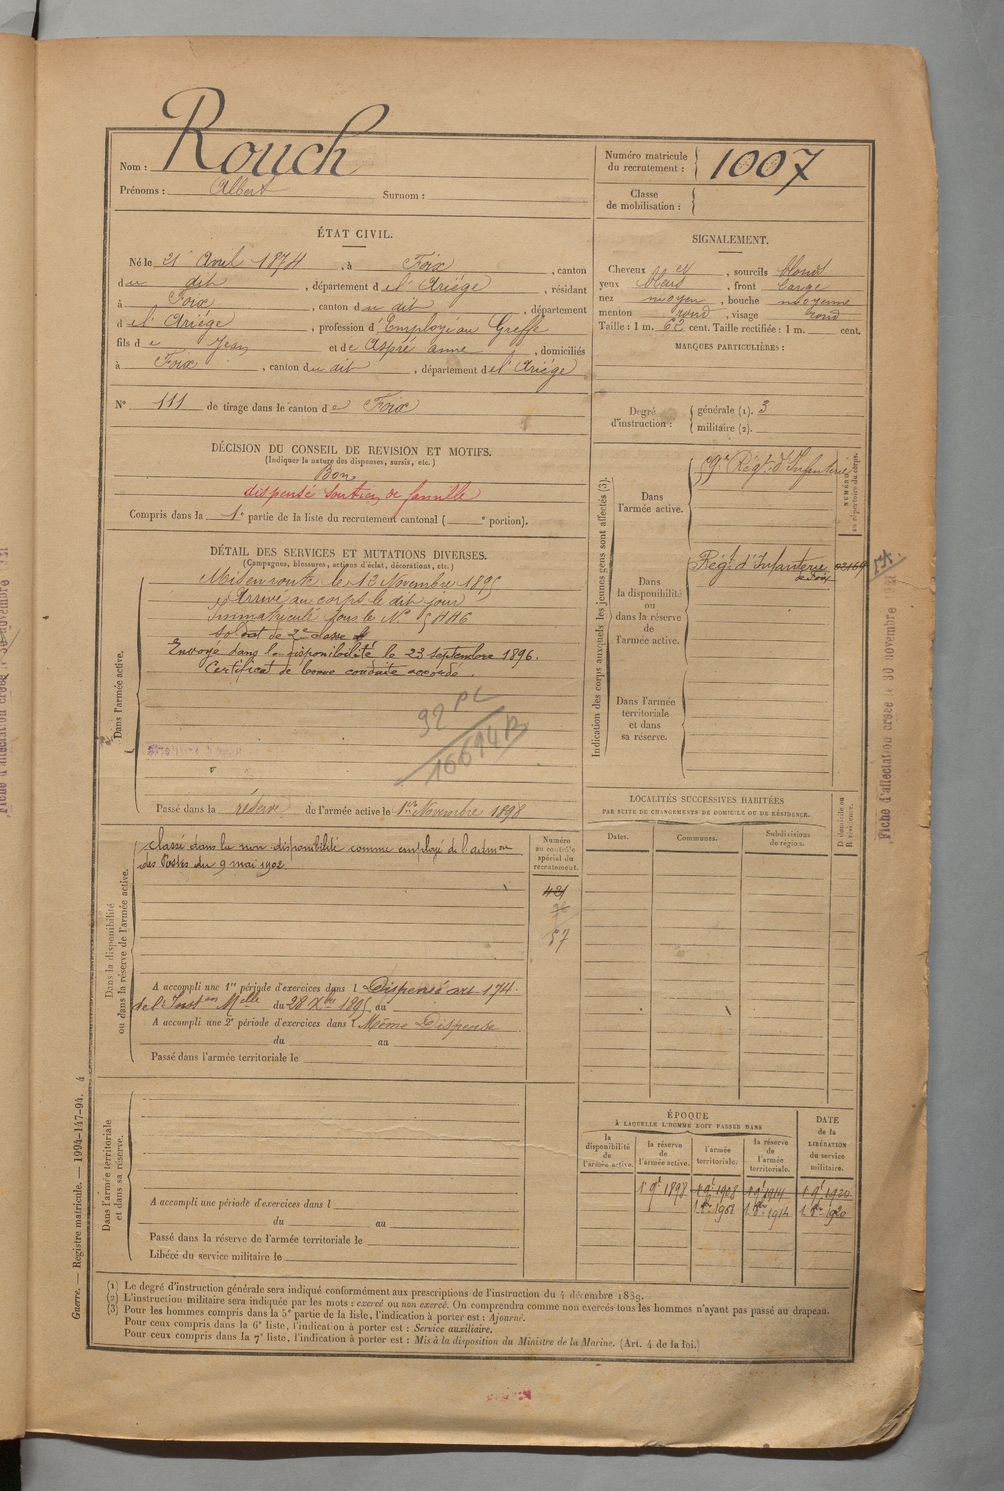 Nom : Rouch
Prénoms : Albert Surnom :
Numéro matricule du recrutement : 1007
Classe de mobilisation :
ÉTAT CIVIL.
Né le 21 Avril 1874, à Foix, canton
du dit, département de l'Ariége, résidant
à Foix, canton du dit, département
de l'Ariége, profession d'Employé au Greffe
fils de Jean et de Aspré anne, domiciliés
à Foix, canton du dit, département de l'Ariége
N° 111 de tirage dans le canton de Foix
SIGNALEMENT.
Cheveux et, sourcils blonds
yeux bleus, front large
nez moyen, bouche moyenne
menton rond, visage rond
Taille : 1 m. 62 cent. Taille rectifiée : 1 m. cent.
MARQUES PARTICULIÈRES :
Degré d'instruction : générale (1). 3
militaire (2).
DÉCISION DU CONSEIL DE REVISION ET MOTIFS.
(Indiquer la nature des dispenses, sursis, etc.)
Bon
dispensé soutien de famille
Compris dans la 1e partie de la liste du recrutement cantonal ( e portion).
DÉTAIL DES SERVICES ET MUTATIONS DIVERSES.
(Campagnes, blessures, actions d'éclat, décorations, etc.)
Dans l'armée active.
Mis en route le 13 Novembre 1895
Arrivé au corps le dit jour
Immatriculé sous le N°
Soldat de 2e classe
Envoyé dans la disponibilité le 23 septembre 1896.
Certificat de bonne conduite accordé.
92 PC
16694 B
Passé dans la réserve de l'armée active le 1er Novembre 1898
Indication des corps auxquels les jeunes gens sont affectés (3).
NUMÉRO au répertoire du corps.
Dans l'armée active.
59e Régt d'Infanterie
Dans la disponibilité ou dans la réserve de l'armée active.
Régt d'Infanterie de Foix
Dans l'armée territoriale et dans sa réserve.
Fiche d'affectation créée le 30 novembre 1921
LOCALITÉS SUCCESSIVES HABITÉES
PAR SUITE DE CHANGEMENTS DE DOMICILE OU DE RÉSIDENCE.
D domicile ou R résidence.
Dates. Communes. Subdivisions de région.
Dans la disponibilité ou dans la réserve de l'armée active.
Classé dans la non disponibilité comme employé de l'admon
des Postes du 9 mai 1902.
Numéro au contrôle spécial du recrutement.
421
57
A accompli une 1re période d'exercices dans l Dispensé art 174
de l'Inston Melle du 28 Xbre 1895 au
A accompli une 2e période d'exercices dans l Même Dispense
du au
Passé dans l'armée territoriale le
Dans l'armée territoriale et dans sa réserve.
A accompli une période d'exercices dans l
du au
Passé dans la réserve de l'armée territoriale le
Libéré du service militaire le
ÉPOQUE
À LAQUELLE L'HOMME DOIT PASSER DANS
la disponibilité de l'armée active.
la réserve de l'armée active.
l'armée territoriale.
la réserve de l'armée territoriale.
DATE de la LIBÉRATION du service militaire.
1 9e 1898 1 9e 1908 1 9e 1914 1 9e 1920
(1) Le degré d'instruction générale sera indiqué conformément aux prescriptions de l'instruction du 4 décembre 1889.
(2) L'instruction militaire sera indiquée par les mots : exercé ou non exercé. On comprendra comme non exercés tous les hommes n'ayant pas passé au drapeau.
(3) Pour les hommes compris dans la 5e partie de la liste, l'indication à porter est : Ajourné.
Pour ceux compris dans la 6e liste, l'indication à porter est : Service auxiliaire.
Pour ceux compris dans la 7e liste, l'indication à porter est : Mis à la disposition du Ministre de la Marine. (Art. 4 de la loi.)
Guerre. — Registre matricule. — 1994-147-94. 4